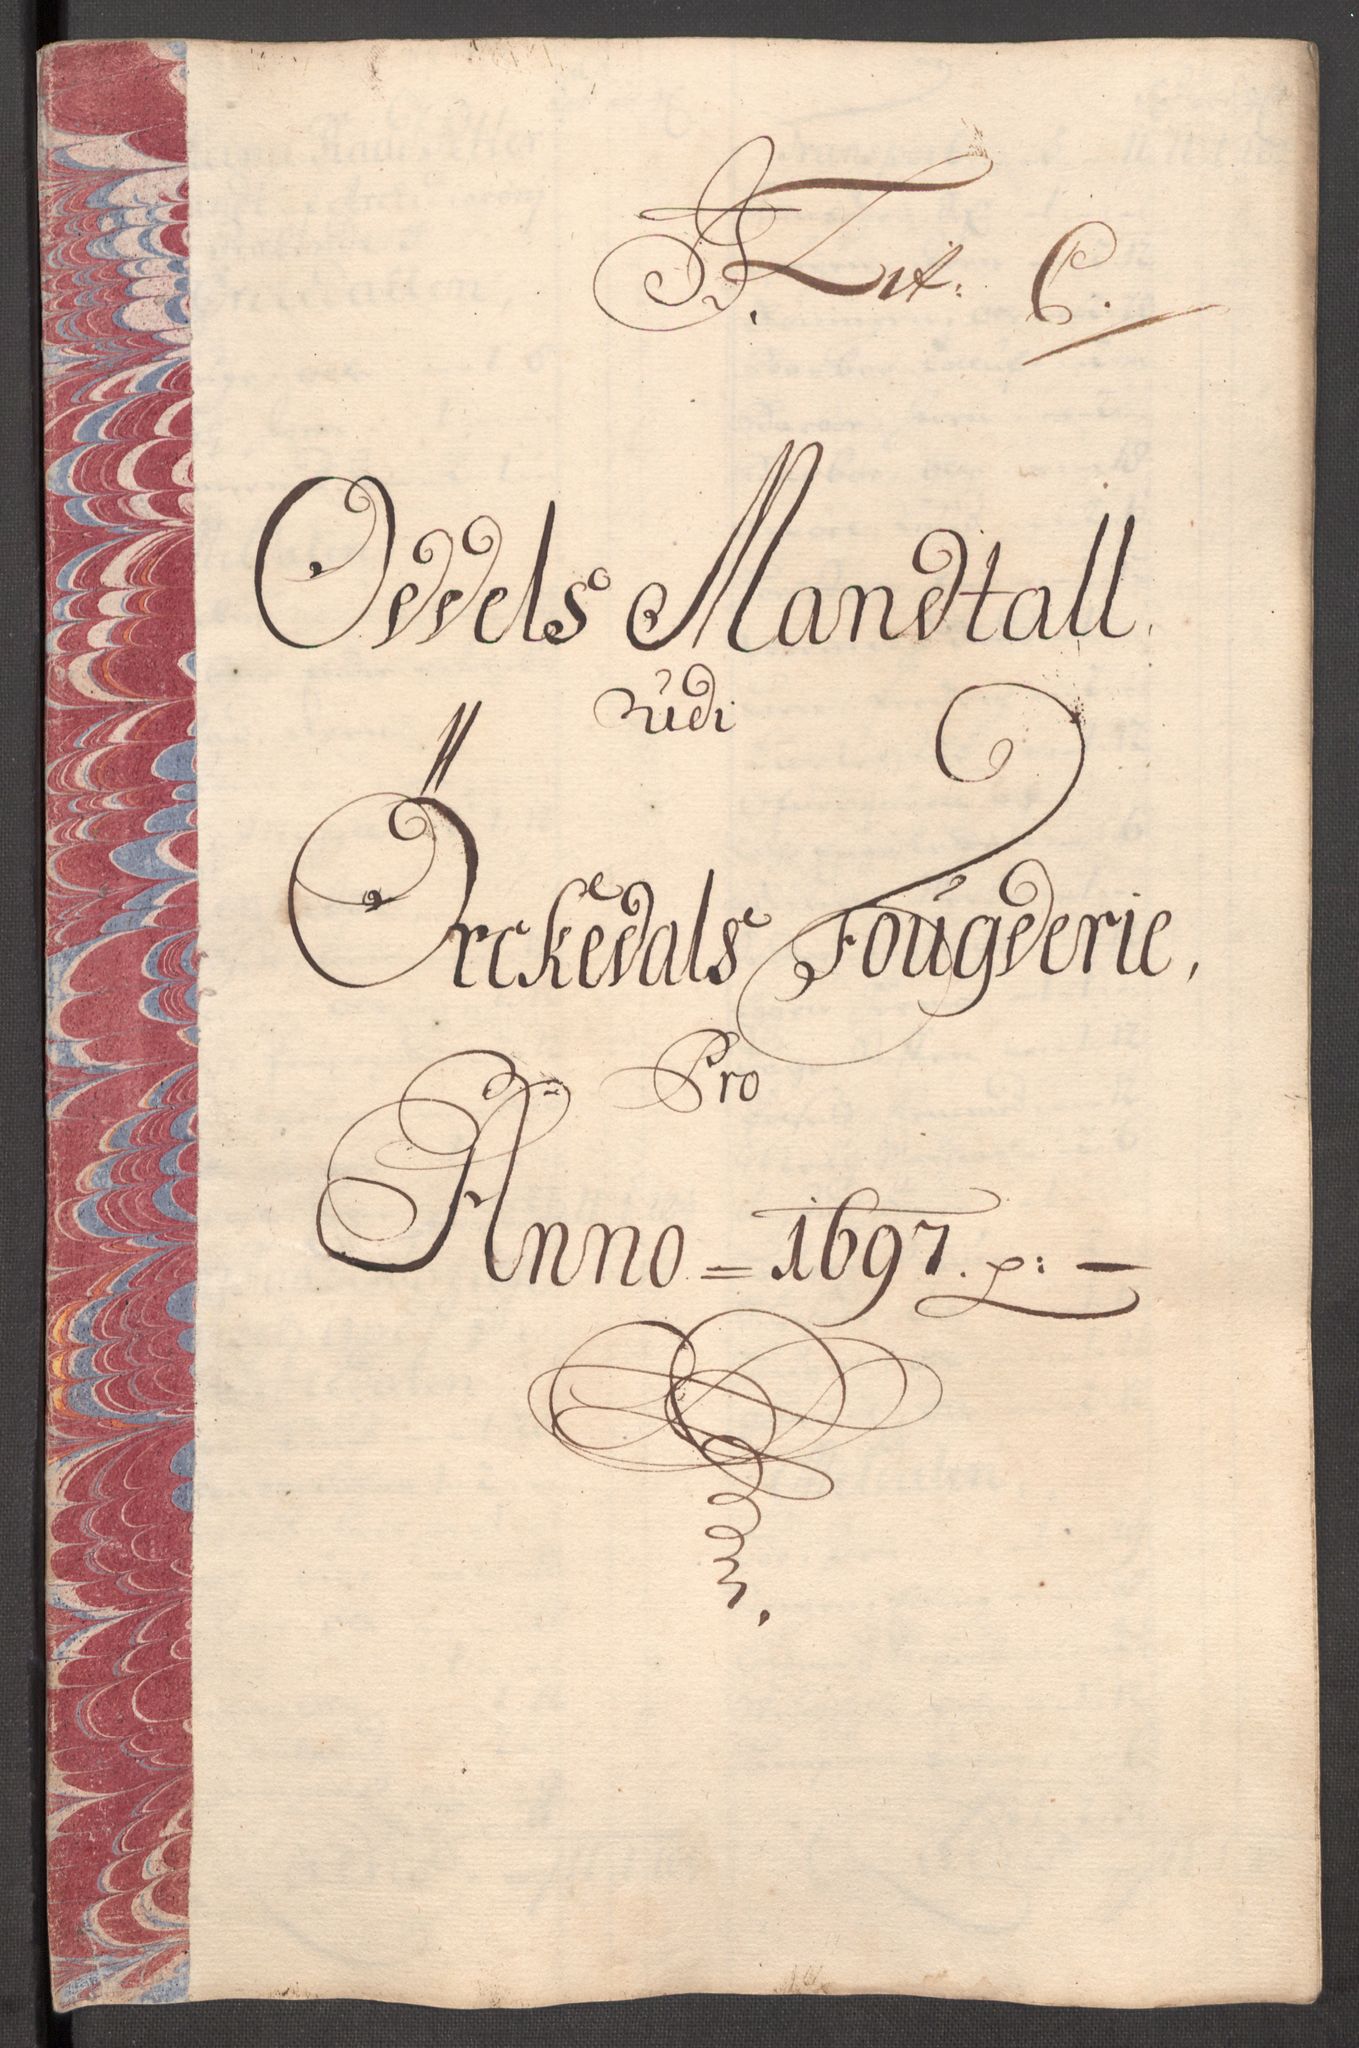 Lit. C.
Oddels Mandtall.
udi
Örckedals Fougderie,
Pro
Anno = 1697. p: —